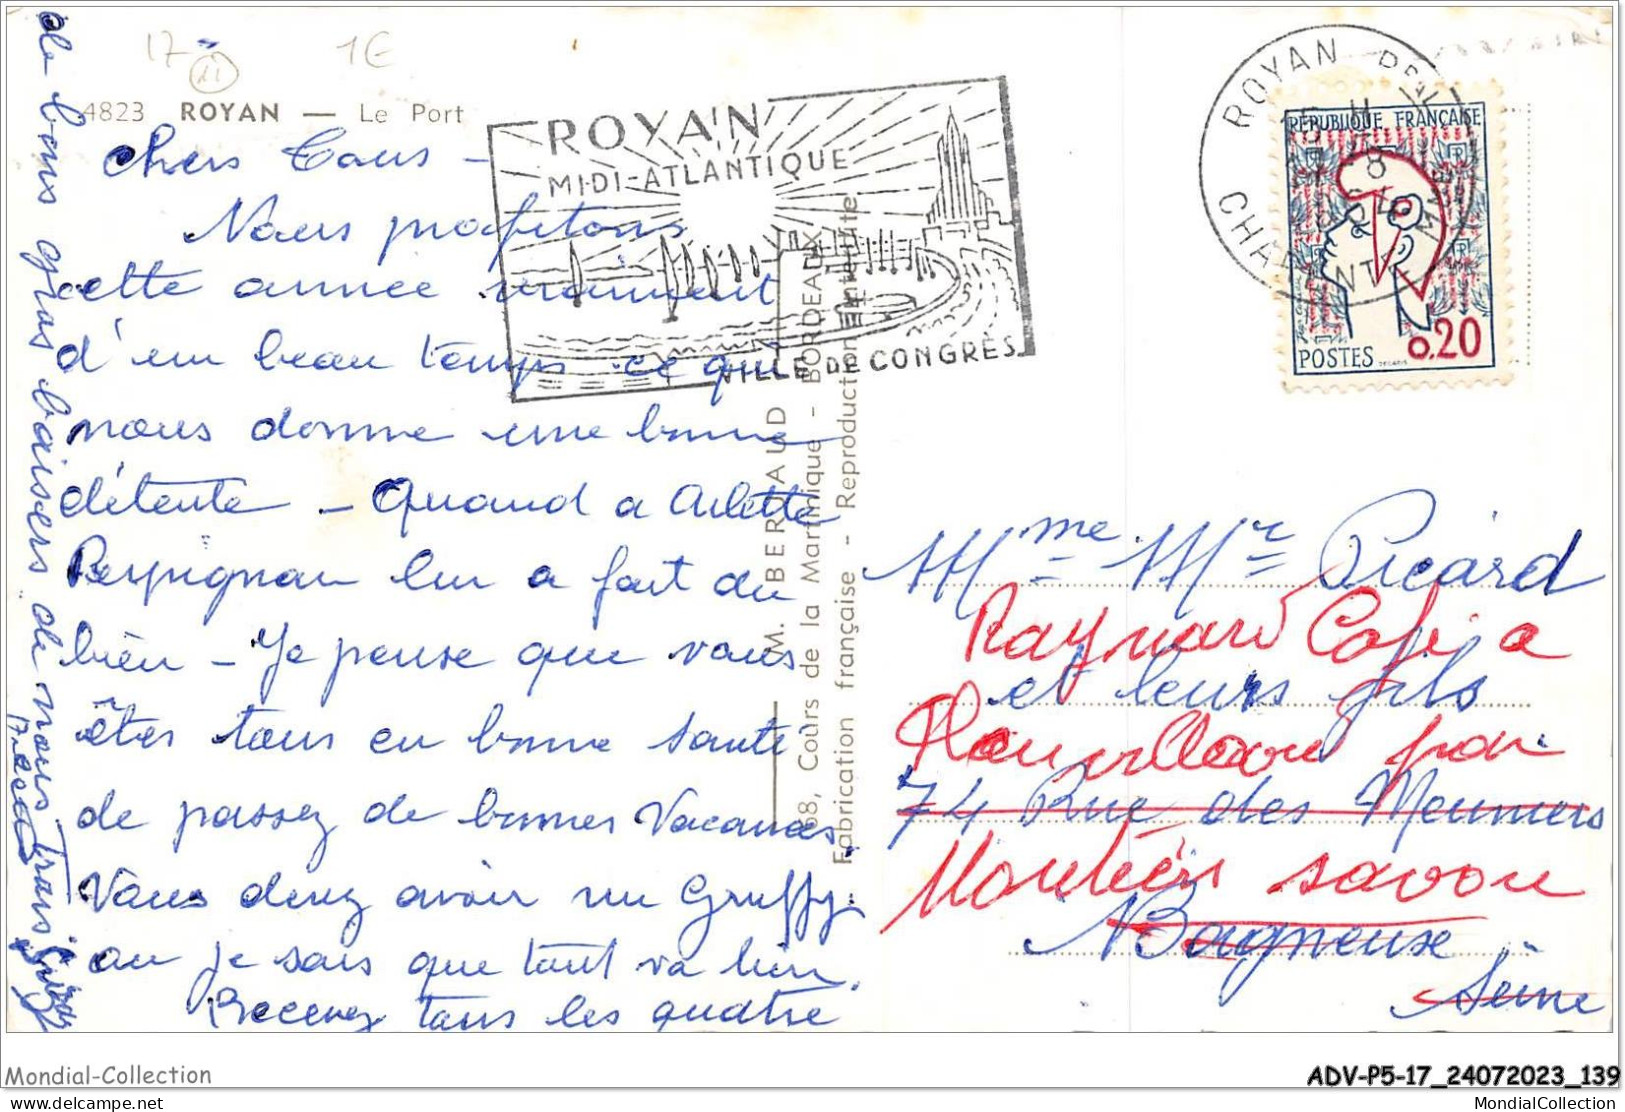 17 11 1€
4823 ROYAN — Le Port
Chers Tous -
Nous profitons
cette année vraiment
d'un beau temps ce qui
nous donne une bonne
détente - Quand a Arlette
Perpignan lui a fait du
bien - Je pense que vous
êtes tous en bonne santé
de passez de bonnes Vacances
Vous devez avoir vu Gruffy
ou je sais que tout va bien.
Recevez tous les quatre
de bons gros baisers de nous trois
ROYAN
MIDI-ATLANTIQUE
VILLE DE CONGRÈS
M. BERJAUD
68, Cours de la Martinique - BORDEAUX
Fabrication française - Reproduction interdite
ROYAN
CHARENTE
RÉPUBLIQUE FRANÇAISE
POSTES 0.20
Mme Mr Picard
Raynard Café a
et leurs fils
par
74 Rue des Meuniers
savoie
Bagneux
Seine
Mondial-Collection
ADV-P5-17_24072023_139
delcampe.net
MondialCollection